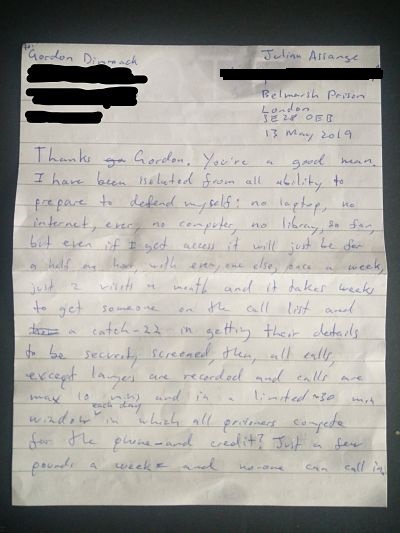 to
Gordon Dimmack
Julian Assange
Belmarsh Prison
London
SE28 0EB
13 May 2019
Thanks Gordon. You're a good man.
I have been isolated from all ability to
prepare to defend myself: no laptop, no
internet, ever, no computer, no library, so far,
but even if I get access it will just be for
a half an hour, with everyone else, once a week,
just 2 visits a month and it takes weeks
to get someone on the call list and
a catch-22 in getting their details
to be security screened, then, all calls,
except lawyer are recorded and calls are
max 10 mins and in a limited ~30 min
each day
window in which all prisoners compete
for the phone and credit? Just a few
pounds a week and no-one can call in.